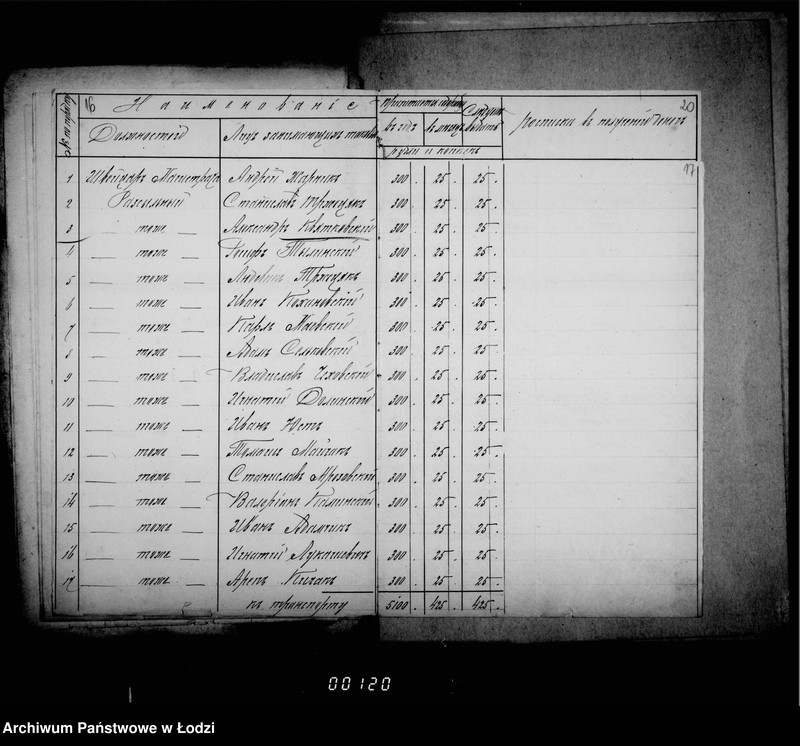 16 Наименованіе 20
№ по порядку Должностей Лицъ занимающихъ таковыя въ годъ въ мѣсяцъ Слѣдуетъ выдать росписка въ полученіи денегъ
рубли и копѣекъ
17
1 Швейцаръ Магистрата Андрей 300. 25. 25.
2 Разсыльный Станиславъ 300. 25. 25.
3 — тоже — Александръ Квятковскій 300. 25. 25.
4 — тоже — Тылинскій 300. 25. 25.
5 — тоже — 300. 25. 25.
6 — тоже — Иванъ 300. 25. 25.
7 — тоже — Карлъ Маевскій 300. 25. 25.
8 — тоже — Адамъ 300. 25. 25.
9 — тоже — Владиславъ 300. 25. 25.
10 — тоже — Игнатій Долинскій 300. 25. 25.
11 — тоже — Иванъ Юстъ 300. 25. 25.
12 — тоже — Томашъ 300. 25. 25.
13 — тоже — Станиславъ Мрозовскій 300. 25. 25.
14 — тоже — Валеріанъ Калинскій 300. 25. 25.
15 — тоже — Иванъ Адамчикъ 300. 25. 25.
16 — тоже — Игнатій Лукашевичъ 300. 25. 25.
17 — тоже — 300. 25. 25.
къ транспорту 5100. 425. 425.
00120
Archiwum Państwowe w Łodzi